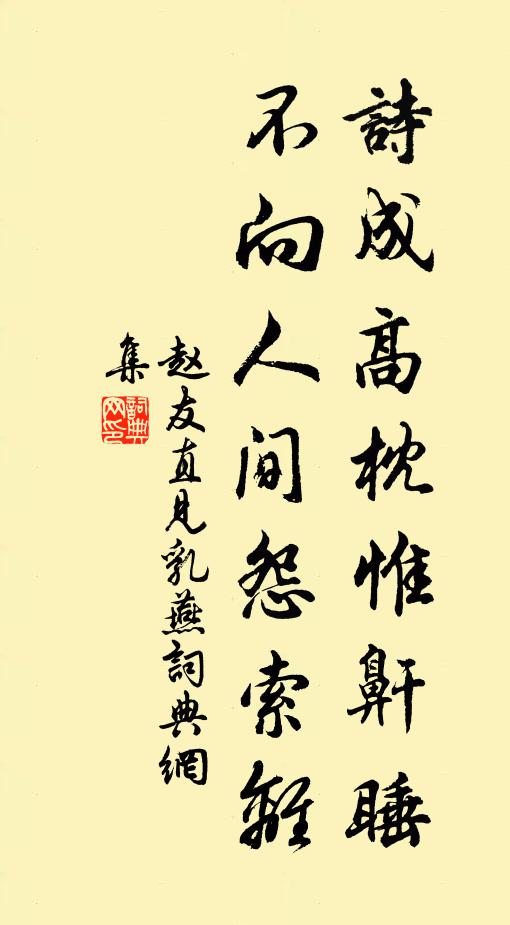 詩成高枕惟鼾睡
不向人间怨索離
赵友直见乳燕詞典網
集
詞典网印